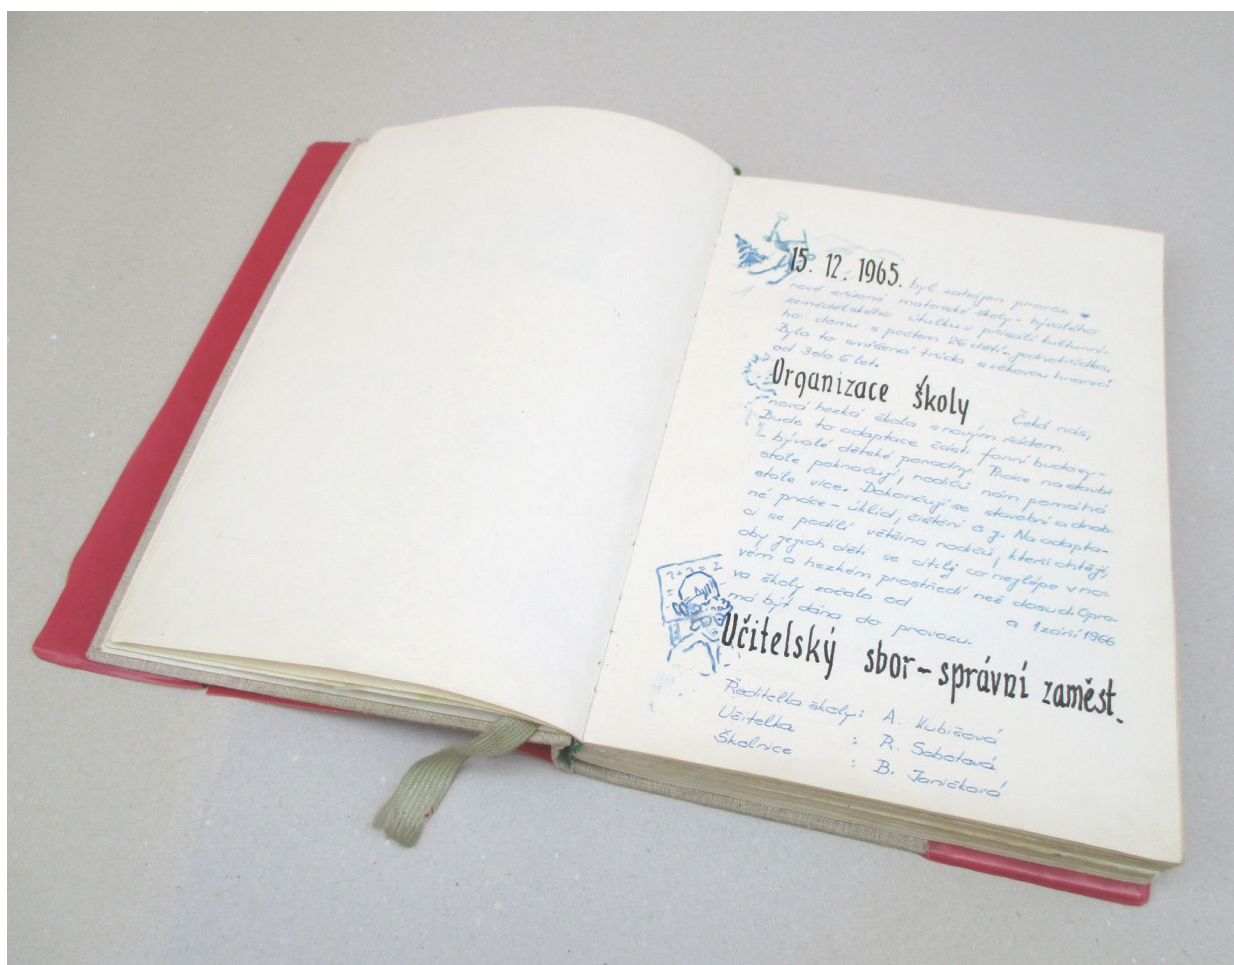 15. 12. 1965. byl zahájen provoz v
nově zřízené mateřské školy - bývalého
zemědělského útulku v přísálí kulturní-
ho domu s počtem 26 dětí - jednotřídka.
Byla to smíšená třída s věkovou hranicí
od 3 do 6 let.
Organizace školy Čeká nás,
nová hezká škola s novým řádem.
Bude to adaptace části farní budovy -
bývalé dětské poradny. Práce na stavbě
stále pokračují, rodičů nám pomáhá
stále více. Dokončují se stavební a drob-
né práce - úklid, čištění a j. Na adapta-
ci se podílí většina rodičů, kteří chtějí,
aby jejich děti se cítily co nejlépe v no-
vém a hezkém prostředí než dosud. Opra-
va školy začala od a 1 září 1966
má být dána do provozu.
Učitelský sbor - správní zaměst.
Ředitelka školy: A. Kubišová
Učitelka : R. Sobotová
Školnice : B. Janíčková
7+3=2